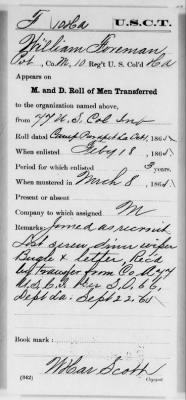 F U.S.C.T.
William Foreman
Pvt, Co. M, 10 Reg't U.S. Col'd H A
Appears on
M. and D. Roll of Men Transferred
to the organization named above,
from 77 U.S. Col Inf
Roll dated Camp Parapet La Oct, 186
When enlisted Feby 18, 186
Period for which enlisted 3 years.
When mustered in March 8, 186
Present or absent
Company to which assigned M
Remarks: Joined as recruit
Lost screw driver wiper
Bugle & letter, Rec'd
by transfer from Co A 77
U.S.C.I. Per S.O. 66,
Dept La. Sept 22. 65
Book mark:
W Car Scott
(342) Copyist.